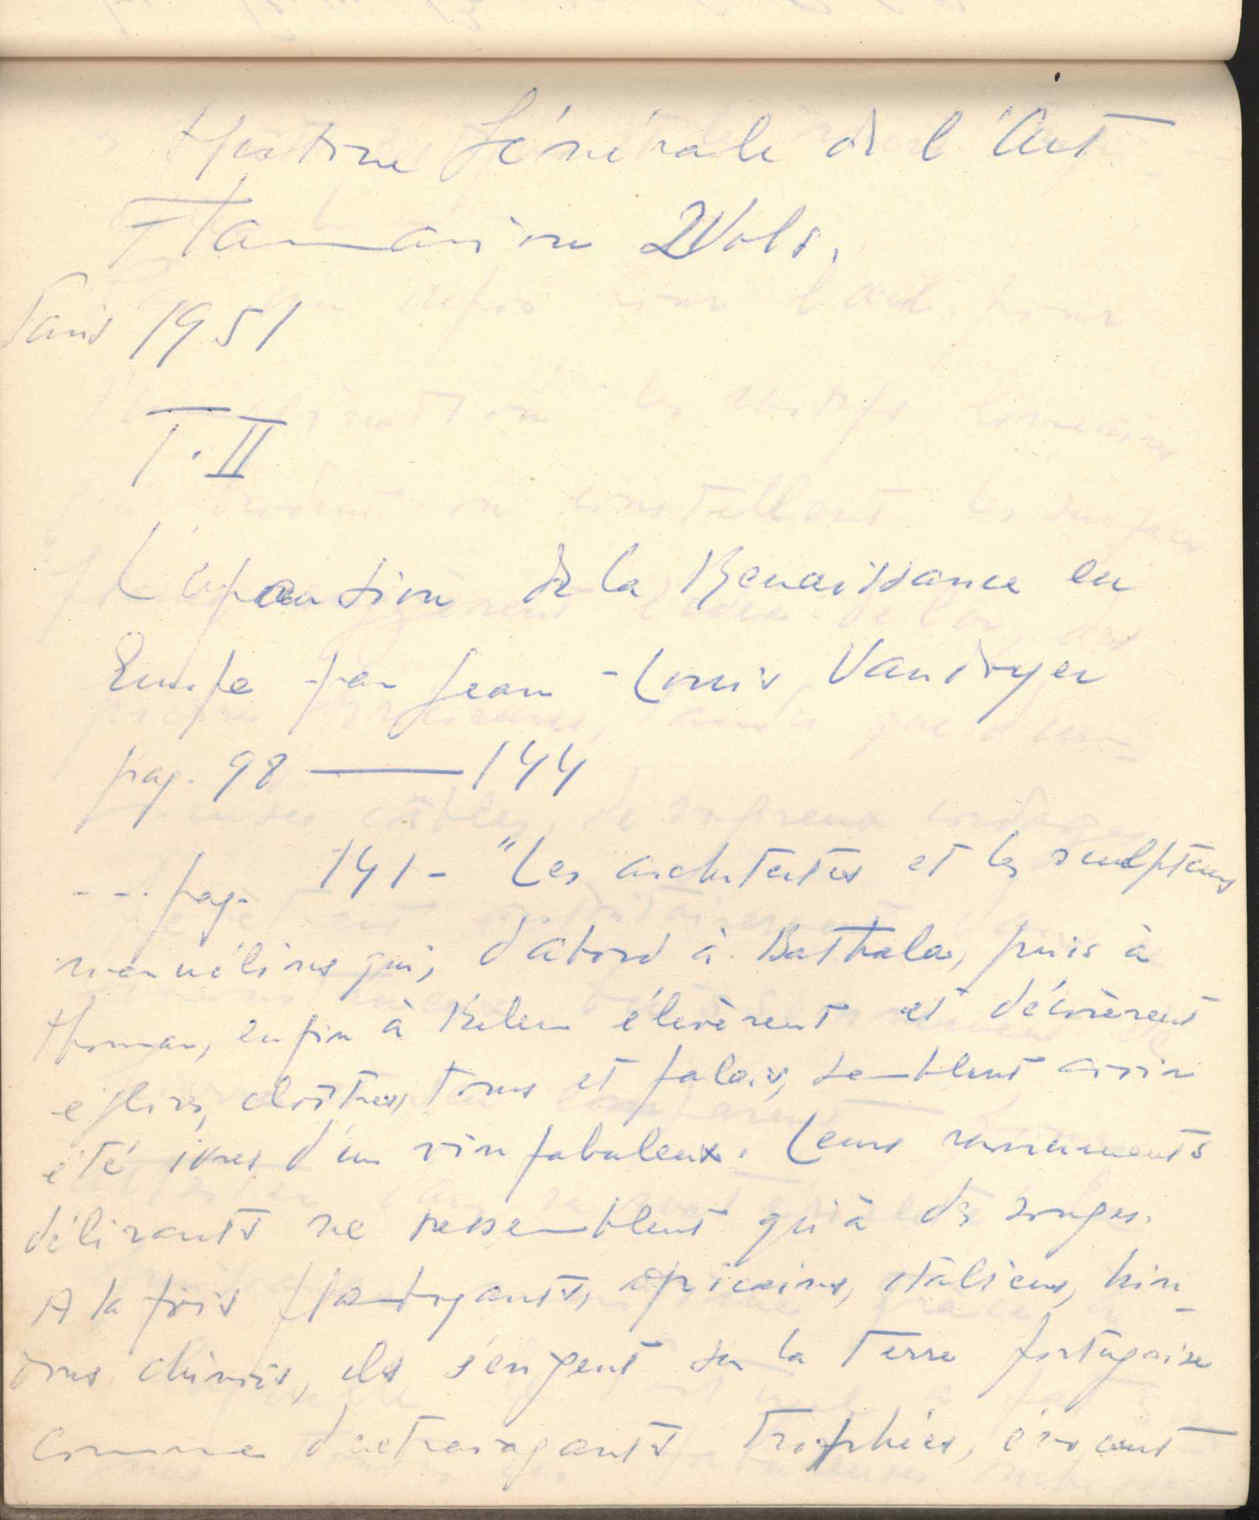 Histoire Générale de l'Art
Flamarion 2 Vols.
Paris 1951
T. II
L'expansion de la Renaissance en
Europe par Jean-Louis Vaudoyer
pag. 98 — 144
--- pag. 141 - "Les architectes et les sculpteurs
manuélins qui, d'abord à Bathala, puis à
Thomar, enfin à Belem élevèrent et décorèrent
églises, cloîtres, tours et palais, semblent avoir
été ivres d'un vin fabuleux. Leurs monuments
délirants ne ressemblent qu'à des songes.
A la fois flamboyants, africains, italiens, hin-
dous chinois, ils s'érigent sur la terre portugaise
comme d'extravagants trophées, évoquant